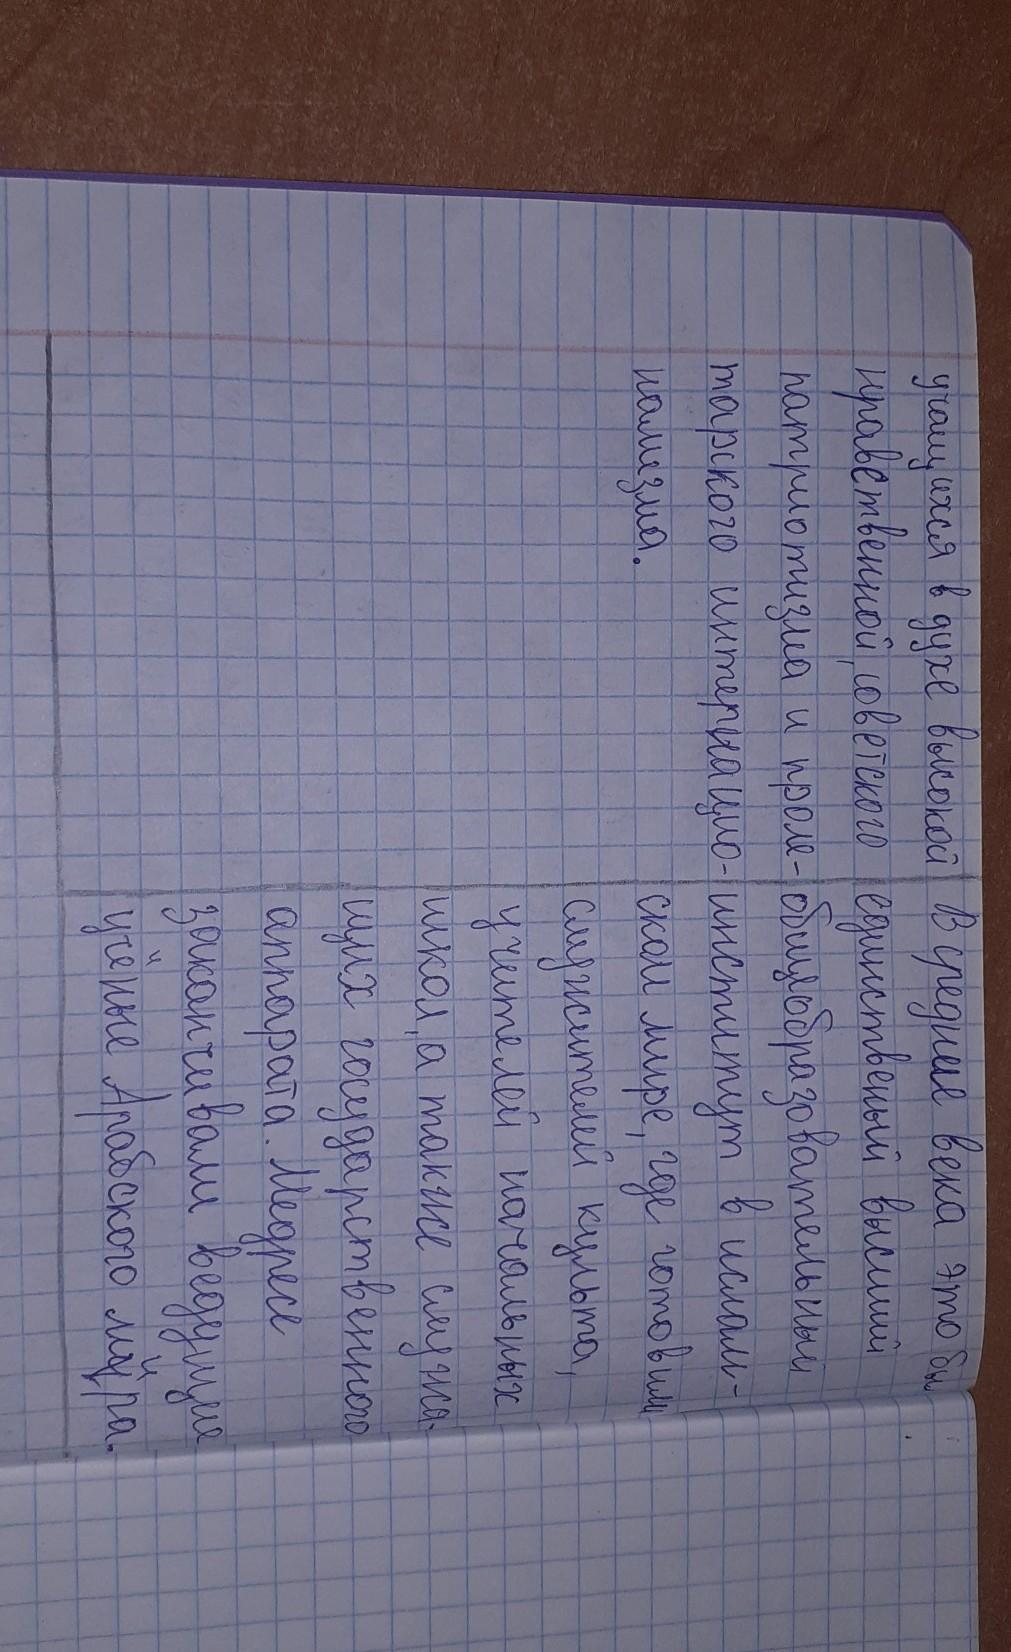 учащихся в духе высокой
нравственной, советского
патриотизма и проле-
тарского интернацио-
нализма.
В средние века это бы
единственый высший
общеобразовательный
институт в ислам-
ском мире, где готовили
служителей культа,
учителей начальных
школ, а также служа-
щих государственного
аппарата. Медресе
заканчивали ведущие
учёные Арабского мира.